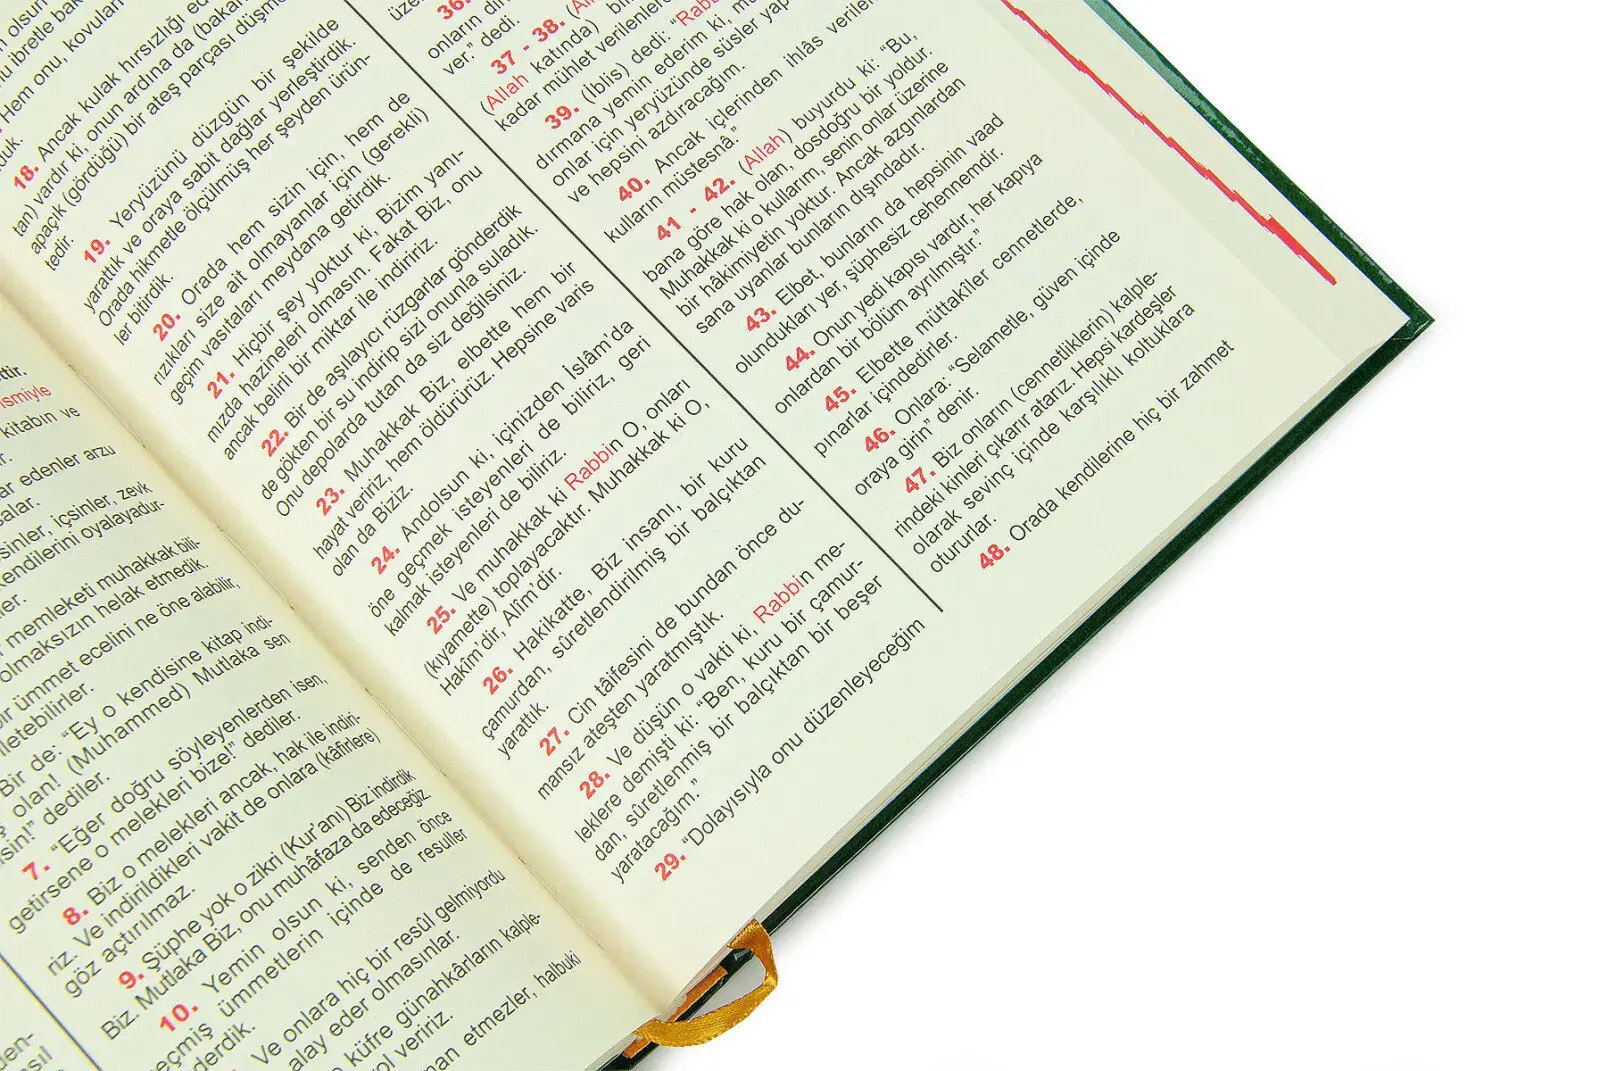 ttir.
ismiyle
kitabın ve
r.
ar edenler arzu
salar.
sinler, içsinler, zevk
kendilerini oyalayadur-
ler.
r memleketi muhakkak bili-
olmaksızın helak etmedik.
ir ümmet ecelini ne öne alabilir,
iletebilirler.
Bir de: “Ey o kendisine kitap indi-
olan! (Muhammed) Mutlaka sen
sin!” dediler.
7. “Eğer doğru söyleyenlerden isen,
getirsene o melekleri bize!” dediler.
8. Biz o melekleri ancak, hak ile indiri-
riz. Ve indirildikleri vakit de onlara (kâfirlere)
göz açtırılmaz.
9. Şüphe yok o zikri (Kur’anı) Biz indirdik
Biz. Mutlaka Biz, onu muhâfaza da edeceğiz.
10. Yemin olsun ki, senden önce
geçmiş ümmetlerin içinde de resuller
derdik.
Ve onlara hiç bir resûl gelmiyordu
alay eder olmasınlar.
küfre günahkârların kalple-
ol veririz.
man etmezler, halbuki
olsun
u ibretle bak
Hem onu, kovulan
duk.
18. Ancak kulak hırsızlığı ed
tan) vardır ki, onun ardına da (bakan
apaçık (gördüğü) bir ateş parçası düşme
tedir.
19. Yeryüzünü düzgün bir şekilde
yarattık ve oraya sabit dağlar yerleştirdik.
Orada hikmetle ölçülmüş her şeyden ürün-
ler bitirdik.
20. Orada hem sizin için, hem de
rızıkları size ait olmayanlar için (gerekli)
geçim vastaları meydana getirdik.
21. Hiçbir şey yoktur ki, Bizim yanı-
mızda hazineleri olmasın. Fakat Biz, onu
ancak belirli bir miktar ile indiririz.
22. Bir de aşılayıcı rüzgarlar gönderdik
de gökten bir su indirip sizi onunla suladık.
Onu depolarda tutan da siz değilsiniz.
23. Muhakkak Biz, elbette hem bir
hayat veririz, hem öldürürüz. Hepsine varis
olan da Biziz.
24. Andolsun ki, içinizden İslâm’da
öne geçmek isteyenleri de biliriz, geri
kalmak isteyenleri de biliriz.
25. Ve muhakkak ki Rabbin O, onları
(kıyamette) toplayacaktır. Muhakkak ki O,
Hakîm’dir, Alîm’dir.
26. Hakikatte, Biz insanı, bir kuru
çamurdan, sûretlendirilmiş bir balçıktan
yarattık.
27. Cin tâifesini de bundan önce du-
mansız ateşten yaratmıştık.
28. Ve düşün o vakti ki, Rabbin me-
leklere demişti ki: “Ben, kuru bir çamur-
dan, sûretlenmiş bir balçıktan bir beşer
yaratacağım.”
29. “Dolayısıyla onu düzenleyeceğim
36.
onların diri
ver.” dedi.
37 - 38. (Al
(Allah katında) bili
kadar mühlet verilenlere
39. (İblis) dedi: “Rabb
dırmana yemin ederim ki, m
onlar için yeryüzünde süsler yap
ve hepsini azdıracağım.
40. Ancak içlerinden ihlâs verilen
kulların müstesnâ.”
41 - 42. (Allah) buyurdu ki: “Bu,
bana göre hak olan, dosdoğru bir yoldur.
Muhakkak ki o kullarım, senin onlar üzerine
bir hâkimiyetin yoktur. Ancak azgınlardan
sana uyanlar bunların dışındadır.
43. Elbet, bunların da hepsinin vaad
olundukları yer, şüphesiz cehennemdir.
44. Onun yedi kapısı vardır, her kapıya
onlardan bir bölüm ayrılmıştır.”
45. Elbette müttakîler cennetlerde,
pınarlar içindedirler.
46. Onlara: “Selametle, güven içinde
oraya girin” denir.
47. Biz onların (cennetliklerin) kalple-
rindeki kinleri çıkarır atarız. Hepsi kardeşler
olarak sevinç içinde karşılıklı koltuklara
otururlar.
48. Orada kendilerine hiç bir zahmet